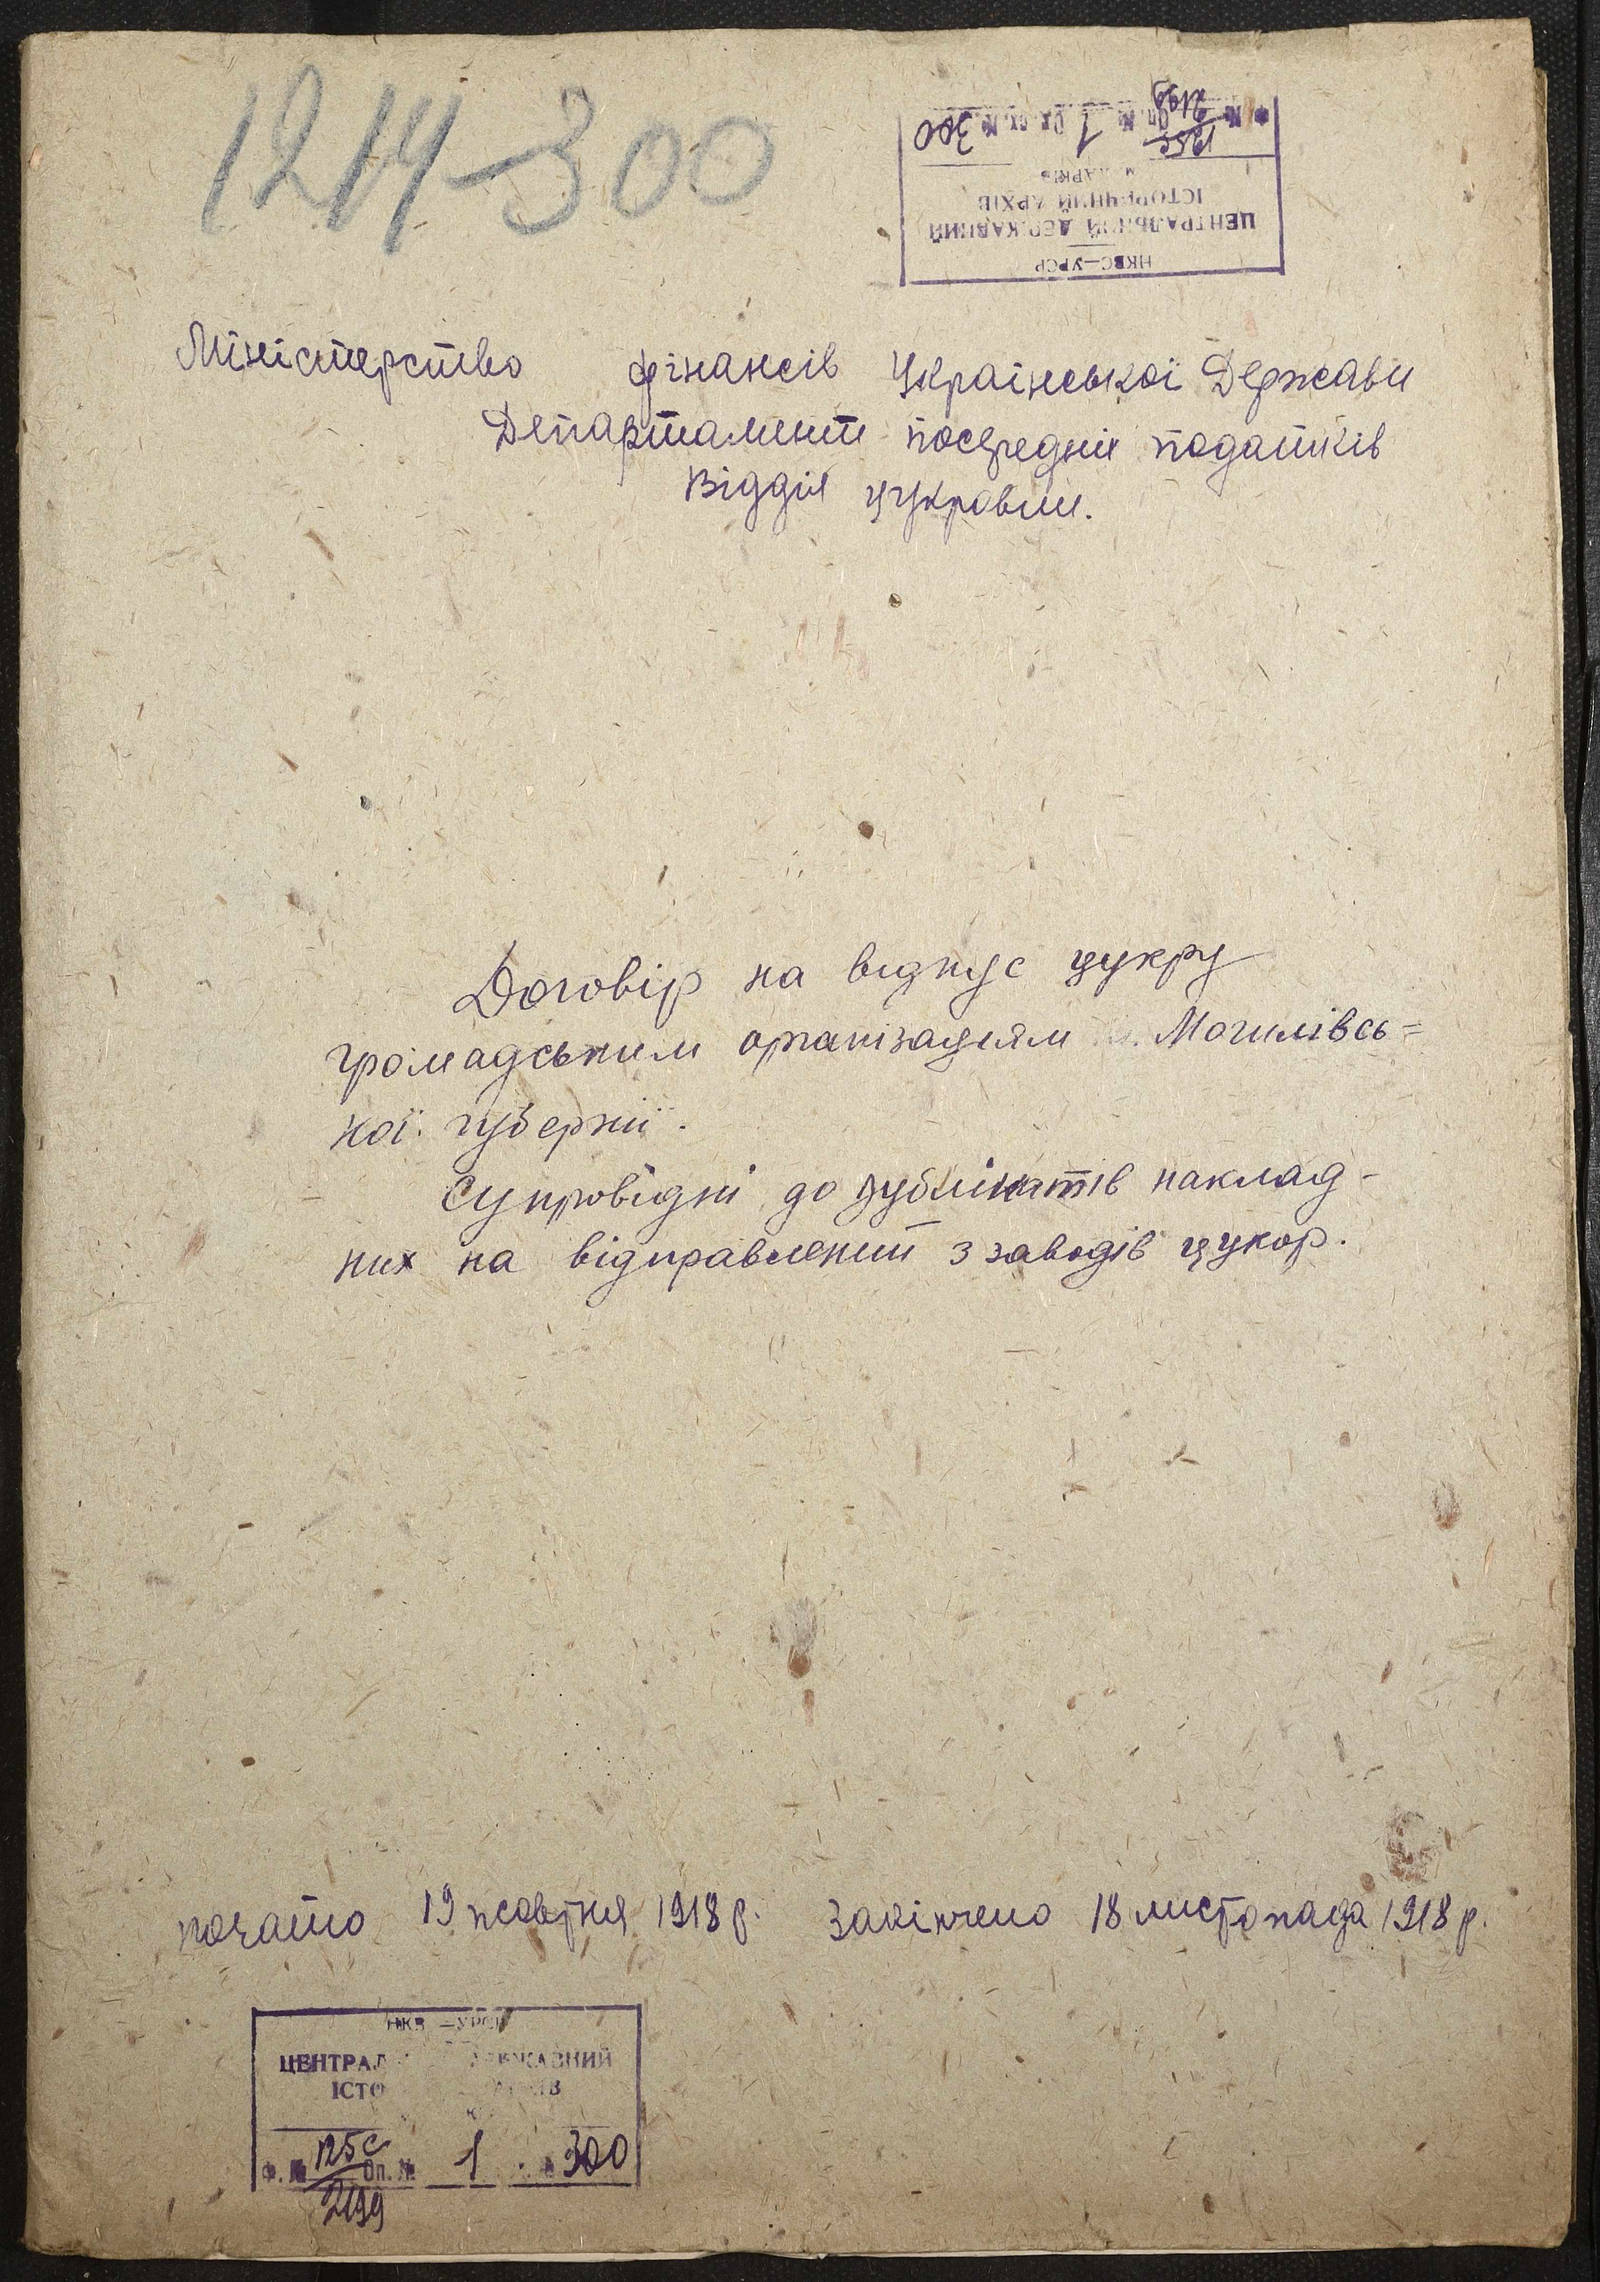 1214-300
НКВС—УРСР
ЦЕНТРАЛЬНИЙ ДЕРЖАВНИЙ
ІСТОРИЧНИЙ АРХІВ
м. ХАРКІВ
Ф. № 125с Оп. № 1 Од. зб. № 300
2199
Міністерство фінансів Української Держави
Департамент посередніх податків
Відділ цукровий.
Договір на відпус цукру
громадським організаціям Могилівсь=
кої губернії.
Супровідні до дублікатів наклад-
них на відправлений з заводів цукор.
почато 19 жовтня 1918 р. закінчено 18 листопада 1918 р.
НКВ —УРСР
ЦЕНТРАЛ ДЕРЖАВНИЙ
ІСТО АРХІВ
Ф. № 125с Оп. № 1 300
2199